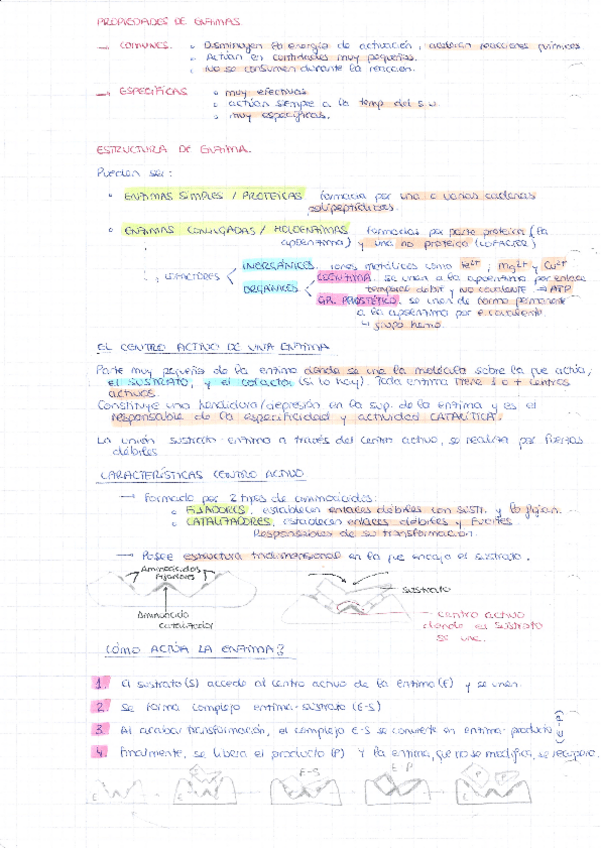 PROPIEDADES DE ENZIMAS.
→ COMUNES. • Disminuyen la energía de activación, aceleran reacciones químicas
• Actúan en cantidades muy pequeñas.
• No se consumen durante la reacción.
→ ESPECÍFICAS • muy efectivas
• actúan siempre a la temp del s.v.
• muy específicas.
ESTRUCTURA DE ENZIMA.
Pueden ser:
• ENZIMAS SIMPLES / PROTEICAS formada por una o varias cadenas
polipeptídicas.
• ENZIMAS CONJUGADAS / HOLOENZIMAS formadas por parte proteica (la
apoenzima) y una no proteica (COFACTOR)
↳ COFACTORES INORGÁNICOS. iones metálicos como Fe2+, Mg2+ y Cu2+
ORGÁNICOS COENZIMA. se unen a la apoenzima por enlace
temporal débil y no covalente → ATP
GR. PROSTÉTICO. se unen de forma permanente
a la apoenzima por e. covalente.
↳ grupo hemo.
EL CENTRO ACTIVO DE UNA ENZIMA
Parte muy pequeña de la enzima donde se une la molécula sobre la que actúa,
el SUSTRATO, y el cofactor (si lo hay). Toda enzima tiene 1 o + centros
activos.
Constituye una hendidura/depresión en la sup. de la enzima y es el
responsable de la especificidad y actividad CATALÍTICA.
La unión sustrato-enzima a través del centro activo, se realiza por fuerzas
débiles
CARACTERÍSTICAS CENTRO ACTIVO
→ Formado por 2 tipos de aminoácidos:
• FIJADORES, establecen enlaces débiles con sustr. y lo fijan.
• CATALIZADORES, establecen enlaces débiles y fuertes.
Responsables de su transformación.
→ Posee estructura tridimensional en la que encaja el sustrato.
Aminoácidos
Fijadores
Aminoácido
catalizador
sustrato
centro activo
donde el sustrato
se une.
¿CÓMO ACTÚA LA ENZIMA?
1. El sustrato (S) accede al centro activo de la enzima (E) y se unen.
2. Se forma complejo enzima-sustrato (E-S)
3. Al acabar transformación, el complejo E-S se convierte en enzima-producto (E-P)
4. Finalmente, se libera el producto (P) y la enzima, que no se modifica, se recupera.
E
E-S
E-P
P
P
E